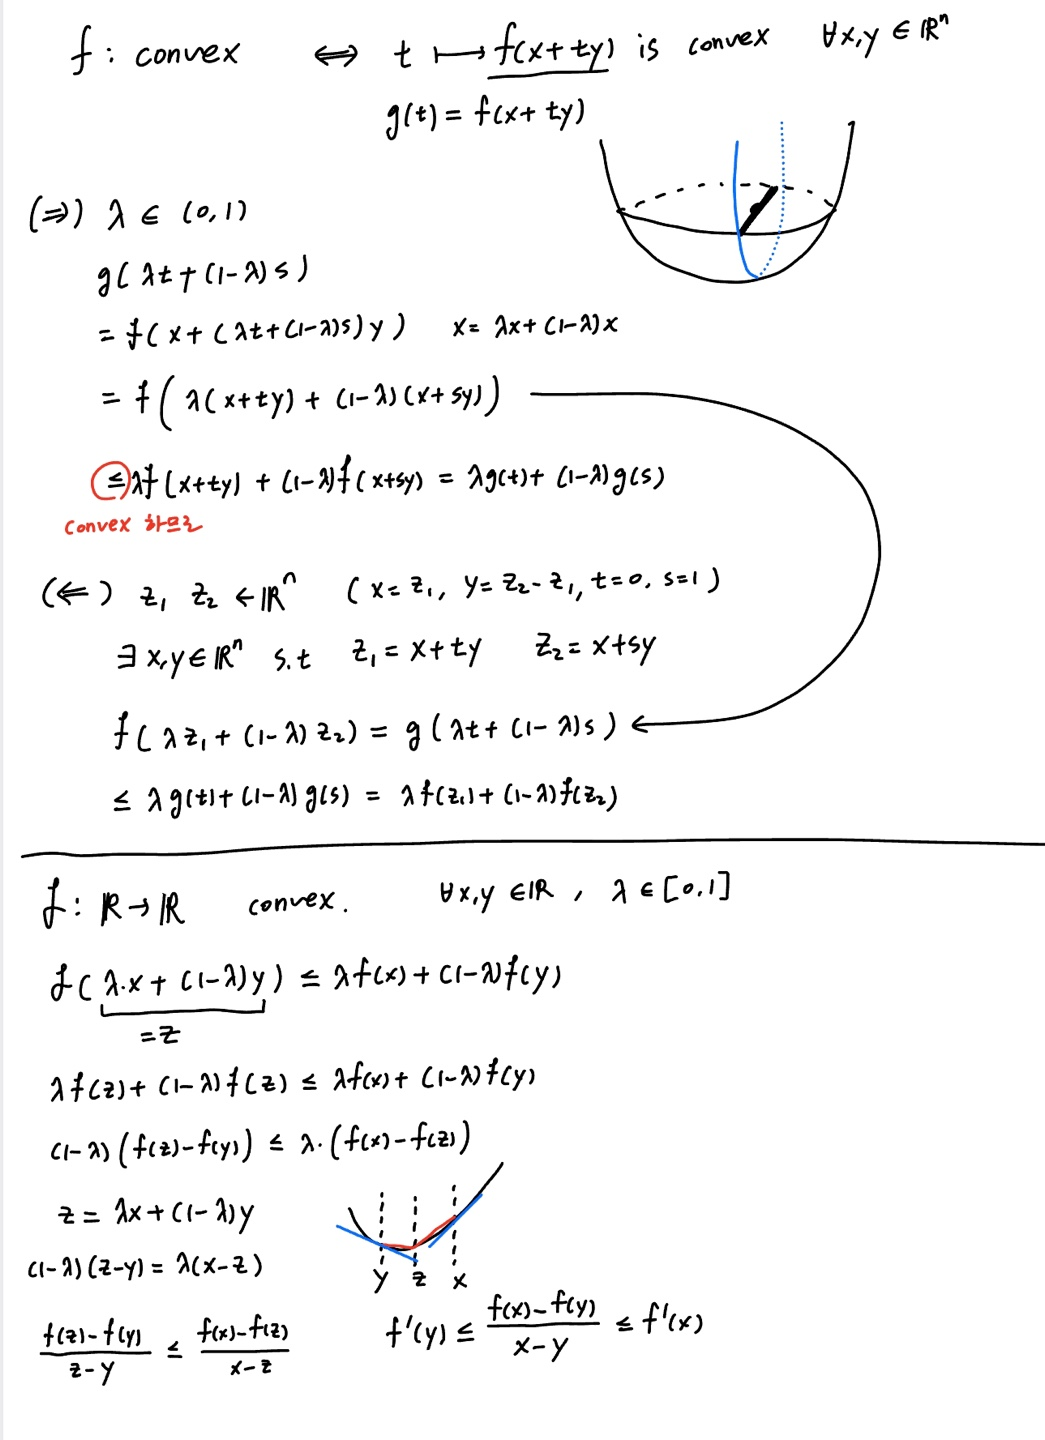 f : convex ⟺ t ⟼ f(x+ty) is convex ∀x,y ∈ ℝⁿ
g(t) = f(x+ty)
(⇒) λ ∈ (0,1)
g(λt+(1-λ)s)
= f(x+(λt+(1-λ)s)y) x = λx+(1-λ)x
= f(λ(x+ty)+(1-λ)(x+sy))
≤ λf(x+ty)+(1-λ)f(x+sy) = λg(t)+(1-λ)g(s)
convex 하므로
(⇐) z₁ z₂ ∈ ℝⁿ (x=z₁, y=z₂-z₁, t=0, s=1)
∃x,y∈ℝⁿ s.t z₁=x+ty z₂=x+sy
f(λz₁+(1-λ)z₂) = g(λt+(1-λ)s)
≤ λg(t)+(1-λ)g(s) = λf(z₁)+(1-λ)f(z₂)
f : ℝ→ℝ convex. ∀x,y ∈ℝ, λ∈[0,1]
f(λ·x+(1-λ)y) ≤ λf(x)+(1-λ)f(y)
=z
λf(z)+(1-λ)f(z) ≤ λf(x)+(1-λ)f(y)
(1-λ)(f(z)-f(y)) ≤ λ·(f(x)-f(z))
z = λx+(1-λ)y
(1-λ)(z-y) = λ(x-z)
y z x
(f(z)-f(y))/(z-y) ≤ (f(x)-f(z))/(x-z)
f'(y) ≤ (f(x)-f(y))/(x-y) ≤ f'(x)